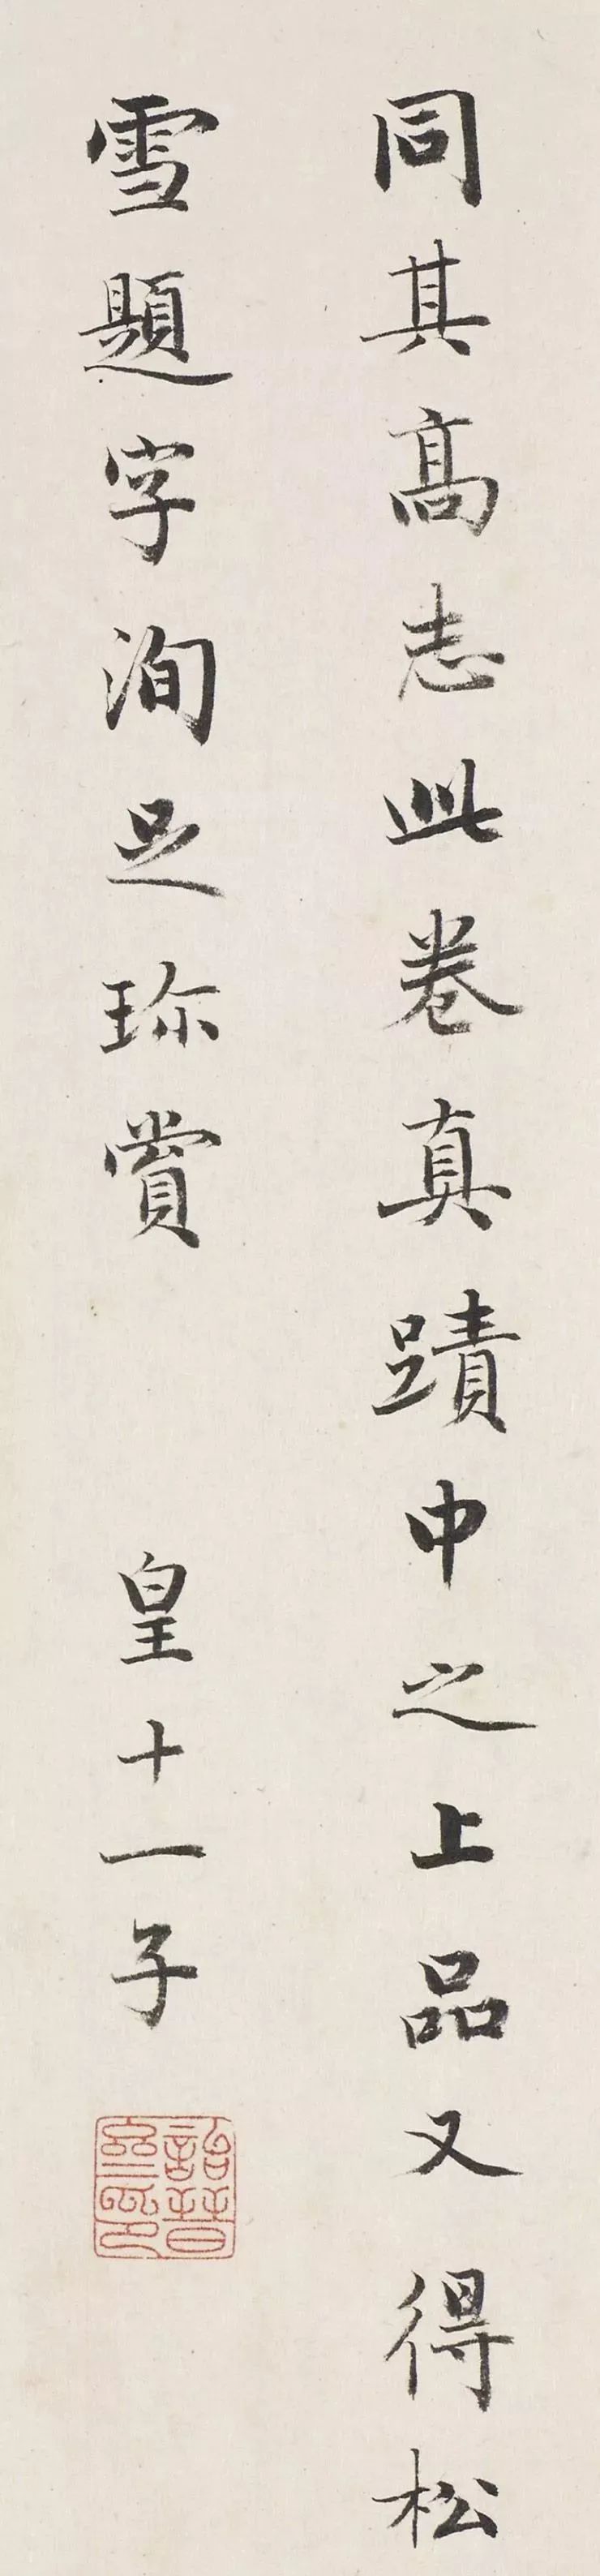 同其高志此卷真蹟中之上品又得松
雪題字洵足珎賞
皇十一子
詒晉齋印